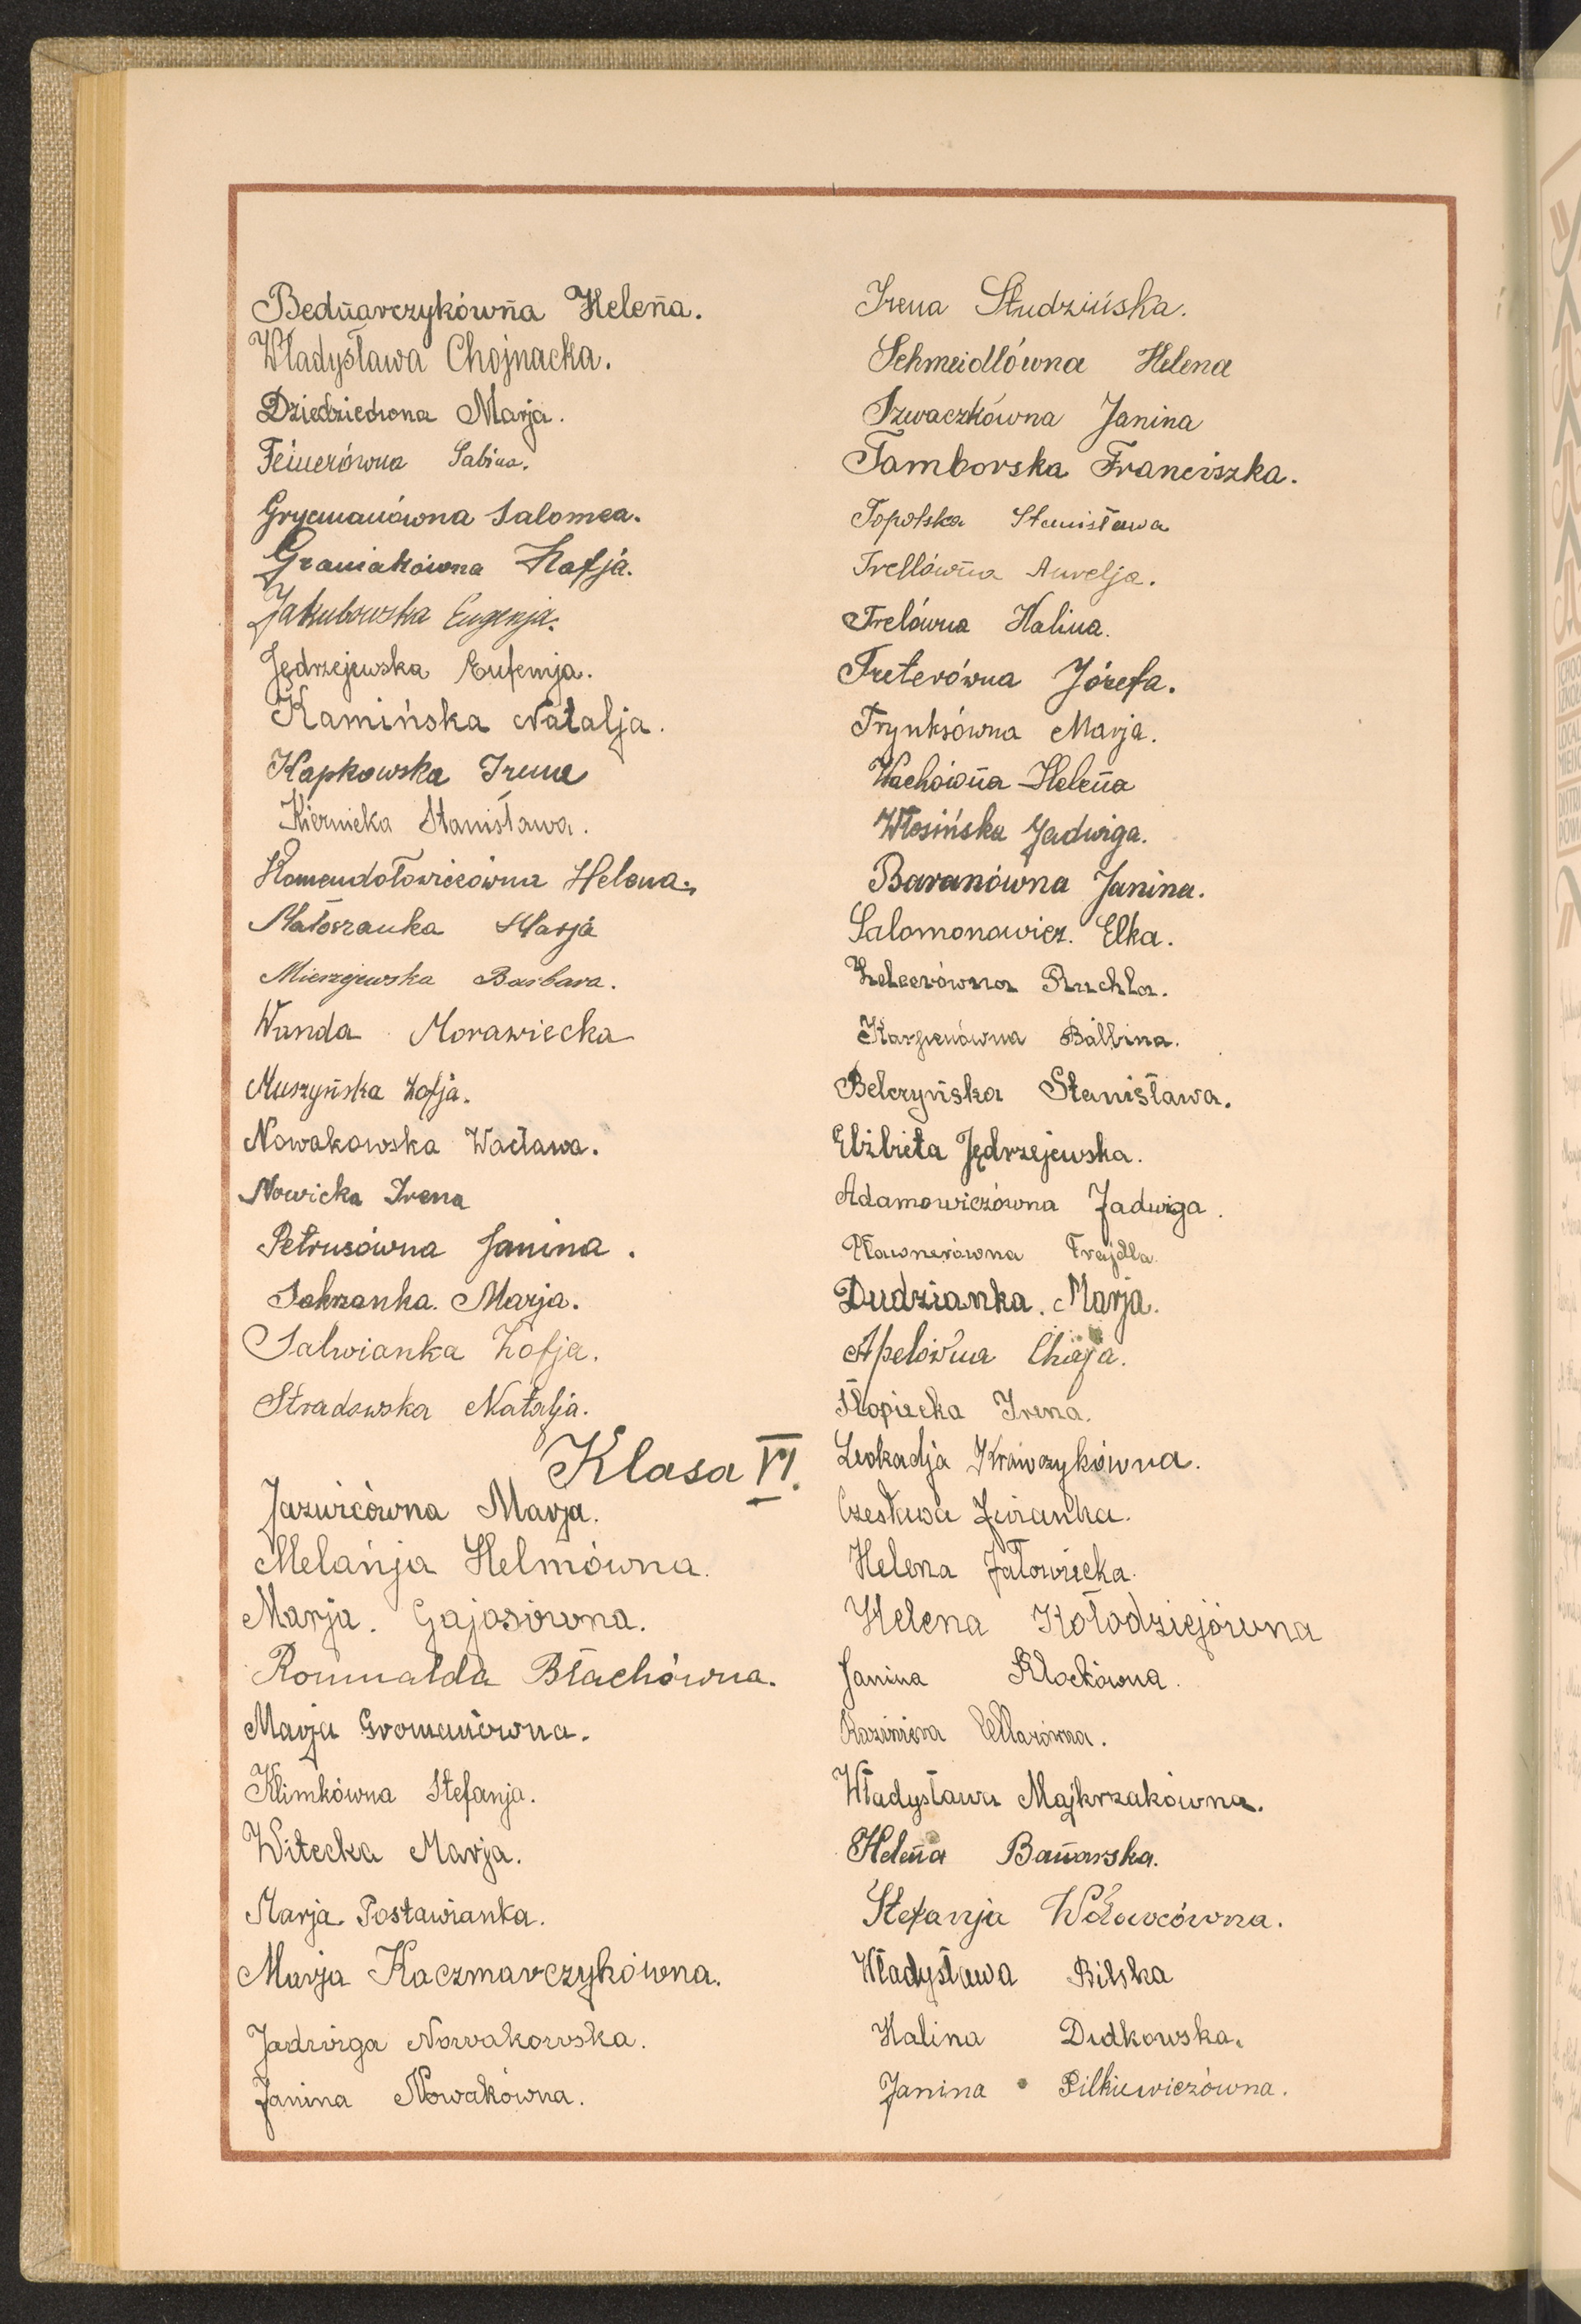 Bednarczykówna Helena.
Władysława Chojnacka.
Dziedzichona Marja.
Feinerówna Sabina.
Grycmanówna Salomea.
Graniakówna Zofja.
Jakubowska Eugenja.
Jędrzejewska Eufemja.
Kamińska Natalja.
Kapkowska Irena
Kiernicka Stanisława.
Komendołowiczówna Helena.
Małoszanka Marja
Mieszejewska Barbara.
Wanda Morawiecka
Muszyńska Zofja.
Nowakowska Wacława.
Nowicka Irena
Petrusówna Janina.
Sakrzanka. Marja.
Salwianka Zofja.
Stradowska Natalja.
Klasa VI.
Jazwicówna Marja.
Melanja Helmówna.
Marja. Gajosówna.
Romualda Błachówna.
Marja Gromanówna.
Klimkówna Stefanja.
Witecka Marja.
Marja Postawianka.
Marja Kaczmarczykówna.
Jadwiga Nowakowska.
Janina Nowakówna.
Irena Studzińska.
Schmeidlówna Helena
Szwaczkówna Janina
Tamborska Franciszka.
Topolska Stanisława
Trellówna Aurelja.
Trelówna Halina.
Treterówna Józefa.
Trynksówna Marja.
Wachówna Helena
Włosińska Jadwiga.
Baranówna Janina.
Salomonowicz. Elka.
Zelcerówna Ruchla.
Karpenówna Balbina.
Belczyńska Stanisława.
Elżbieta Jędrzejewska.
Adamowiczówna Jadwiga.
Pławnerówna Frajdla.
Dudzianka. Marja.
Apelówna Chaja.
Słopiecka Irena.
Leokadja Krawczykówna.
Czesława Żuranka.
Helena Jałowiecka.
Helena Kołodziejówna
Janina Klockówna.
Kazimiera
Władysława Majkrzakówna.
Helena Banarska.
Stefanja
Władysława Bilska
Halina Dudkowska.
Janina Pilkiewiczówna.